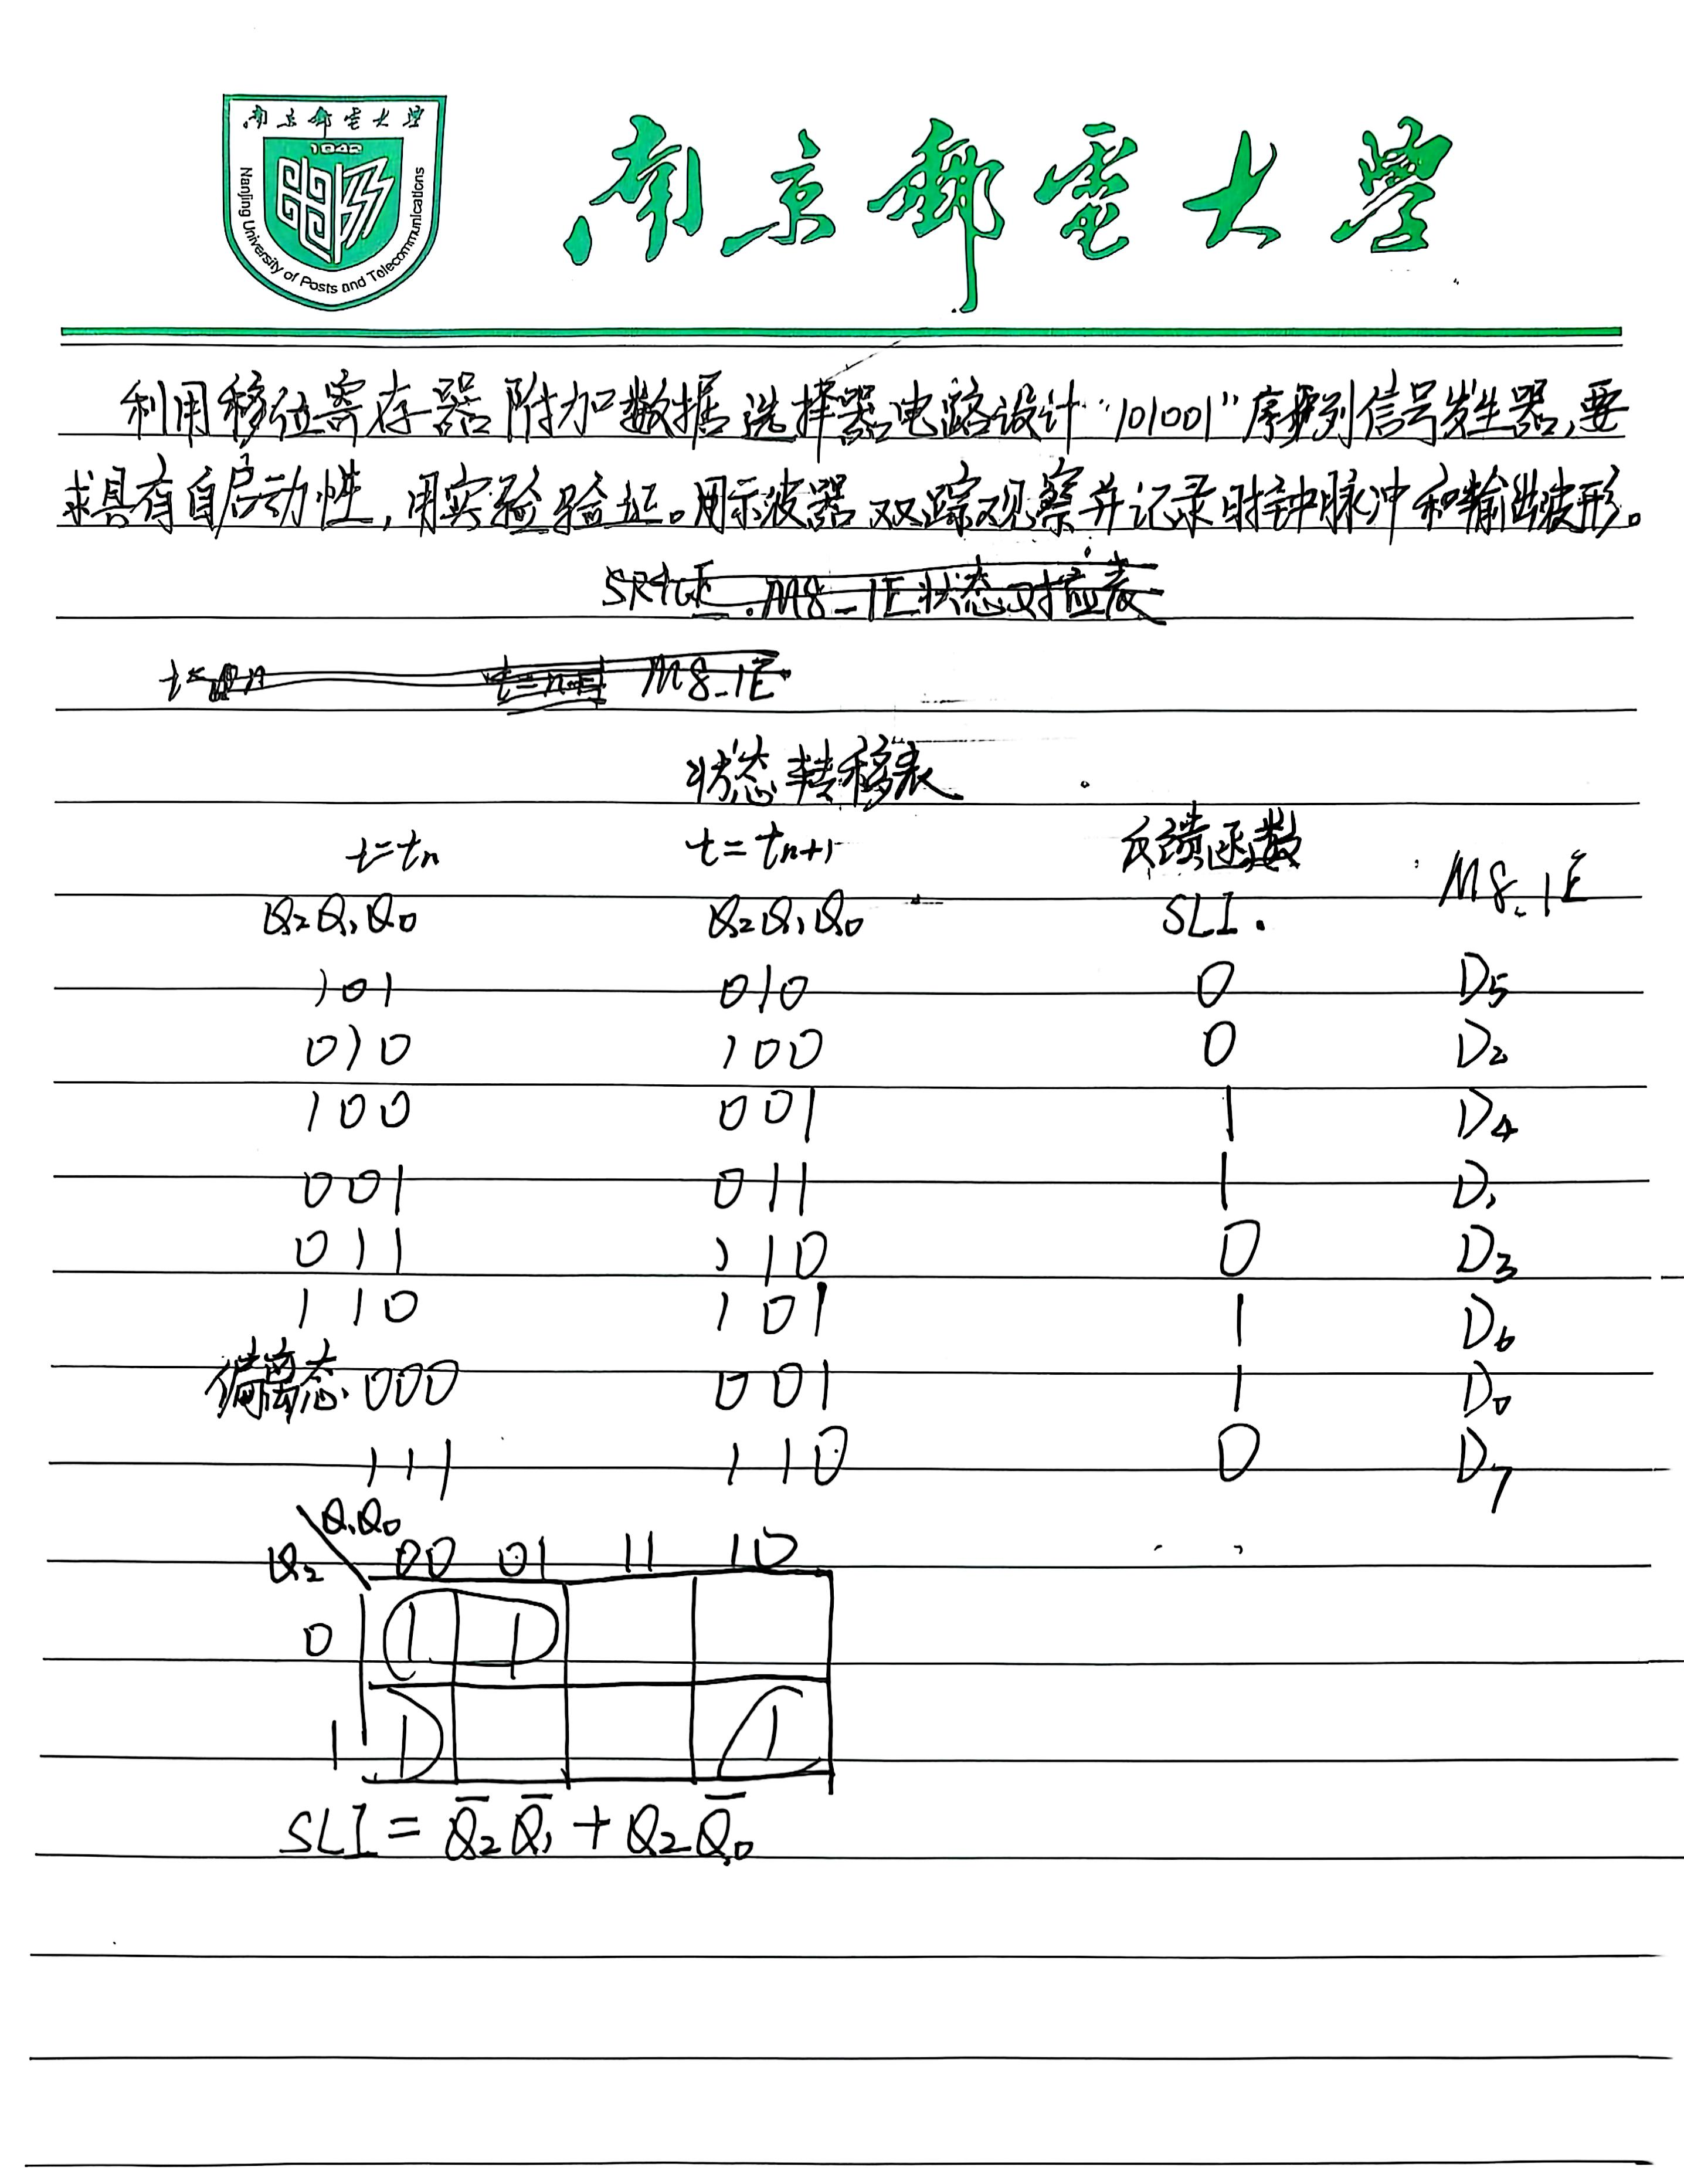 南京邮电大学
1942
Nanjing University of Posts and Telecommunications
南京邮电大学
利用移位寄存器附加数据选择器电路设计“101001”序列信号发生器,要
求具有自启动性,用实验验证。用示波器双踪观察并记录时钟脉冲和输出波形。
M8-1E状态对应表
M8-1E
状态转移表
t=tn t=tn+1 反馈函数 M8-1E
Q2Q1Q0 Q2Q1Q0 SLI.
101 010 0 D5
010 100 0 D2
100 001 1 D4
001 011 1 D1
011 110 0 D3
110 101 1 D6
偏离态 000 001 1 D0
111 110 0 D7
Q1Q0
Q2 00 01 11 10
0 1 1
1 1 1
SLI = Q̅2Q̅1 + Q2Q̅0